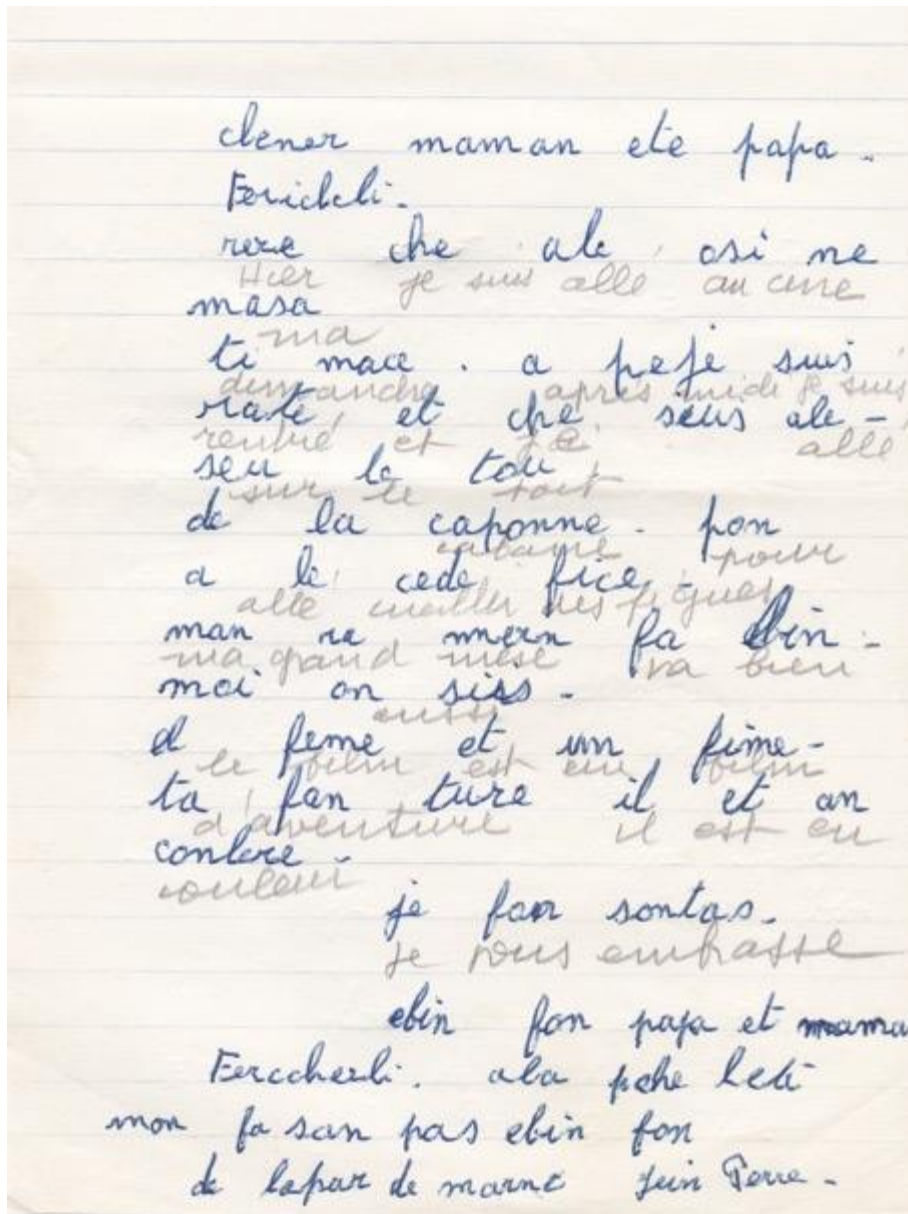 cbener maman ete papa.
Fericbcli.
rere che ale osi ne
Hier je suis allé au cine
masa
ma
ti mace. a peje suis
dimanche après midi je suis
raté et che seus ale-
rentré et je allé
seu le tou
sur le toit
de la caponne. pon
cabane pour
a le cede fice.
allé cueillir des figues
man re mnern fa bin.
ma grand mère va bien
moi on siss.
aussi
el feme et un fime-
le film est un film
ta fan ture il et an
d'aventure il est en
conlere.
couleur
je fon sontas.
je vous embrasse
ebin fon papa et mama
Fercherli. ala pche leti
mon fa san pas ebin fon
de lapar de marne Jein Perre.